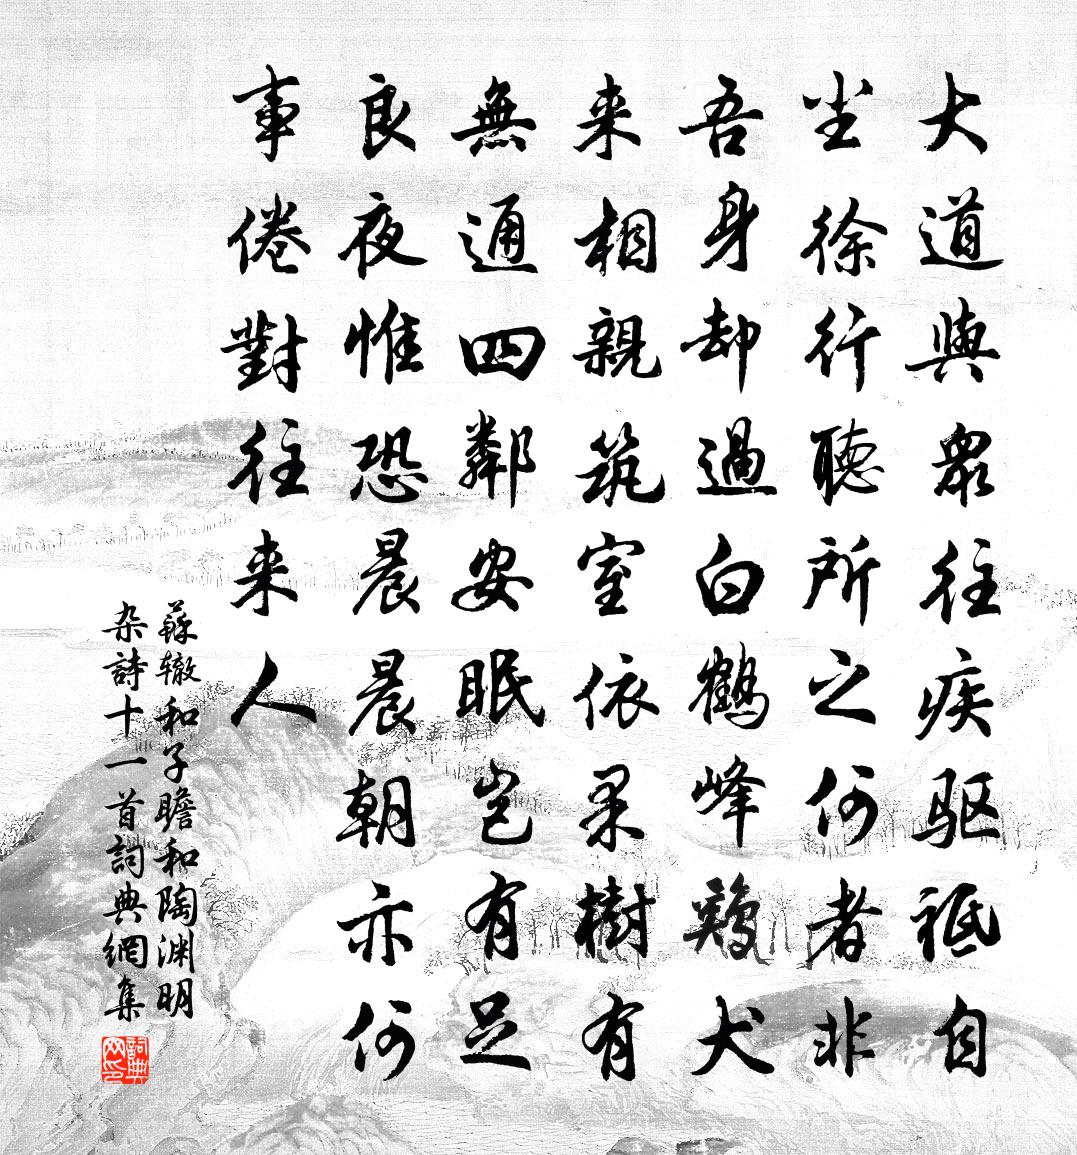 大道與眾往疾驱祗自
尘徐行聽所之何者非
吾身却過白鶴峰鷄犬
来相親筑室依柔樹有
無通四鄰安眠岂有足
良夜惟恐晨晨朝亦何
事倦對往来人
蘇辙和子瞻和陶渊明
杂詩十一首詞典網集
詞典
网印